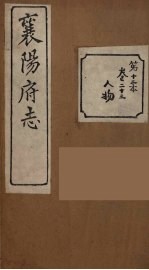 襄陽府志
第十三本
卷二十三
人物